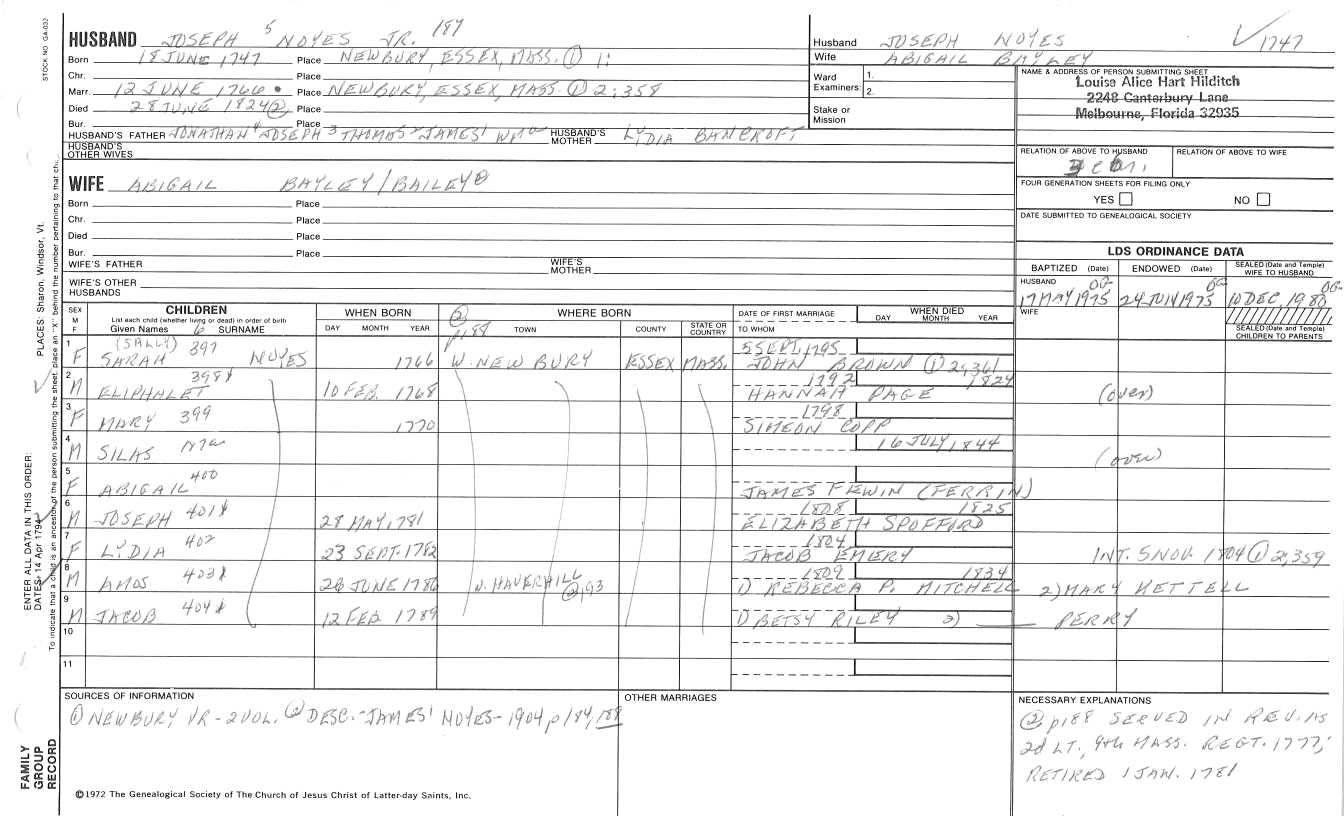 STOCK NO. GA-032
HUSBAND JOSEPH 5 NOYES JR. 187
Born 18 JUNE 1747 Place NEWBURY, ESSEX, MASS. ① 1:
Chr. Place
Marr. 12 JUNE 1766 Place NEWBURY, ESSEX, MASS. ① 2:358
Died 28 JUNE 1824 ② Place
Bur. Place
HUSBAND'S FATHER JONATHAN 4 JOSEPH 3 THOMAS 2 JAMES 1 WM HUSBAND'S MOTHER LYDIA BANCROFT
HUSBAND'S OTHER WIVES
Husband JOSEPH NOYES √1747
Wife ABIGAIL BAYLEY
Ward Examiners: 1. 2.
Stake or Mission
NAME & ADDRESS OF PERSON SUBMITTING SHEET
Louise Alice Hart Hilditch
2248 Canterbury Lane
Melbourne, Florida 32935
RELATION OF ABOVE TO HUSBAND RELATION OF ABOVE TO WIFE
FOUR GENERATION SHEETS FOR FILING ONLY
YES NO
DATE SUBMITTED TO GENEALOGICAL SOCIETY
WIFE ABIGAIL BAYLEY/BAILEY ②
Born Place
Chr. Place
Died Place
Bur. Place
WIFE'S FATHER WIFE'S MOTHER
WIFE'S OTHER HUSBANDS
LDS ORDINANCE DATA
BAPTIZED (Date) ENDOWED (Date) SEALED (Date and Temple) WIFE TO HUSBAND
HUSBAND 17 MAY 1975 OG 24 JUN 1975 OG 10 DEC. 1980 OG
WIFE
SEALED (Date and Temple) CHILDREN TO PARENTS
SEX M F CHILDREN List each child (whether living or dead) in order of birth Given Names 6 SURNAME
WHEN BORN DAY MONTH YEAR
WHERE BORN ② p188 TOWN COUNTY STATE OR COUNTRY
DATE OF FIRST MARRIAGE TO WHOM WHEN DIED DAY MONTH YEAR
1 F (SALLY) SARAH 397 NOYES 1766 W. NEWBURY ESSEX MASS. 5 SEPT. 1795 JOHN BROWN ① 2:361
2 M ELIPHALET 398 10 FEB. 1768 1792 HANNAH PAGE 1824 (over)
3 F MARY 399 1770 1798 SIMEON COPP
4 M SILAS 16 JULY 1844 (over)
5 F ABIGAIL 400 JAMES FEWIN (FERRIN)
6 M JOSEPH 401 28 MAY 1781 1808 ELIZABETH SPOFFORD 1825
7 F LYDIA 402 23 SEPT. 1782 1804 JACOB EMERY INT. 5 NOV. 1804 ① 2:359
8 M AMOS 403 28 JUNE 1786 N. HAVERHILL ② 193 1809 1) REBECCA P. MITCHELL 1834 2) MARY KETTELL
9 M JACOB 404 12 FEB 1789 1) BETSY RILEY 2) ___ PERRY
10
11
SOURCES OF INFORMATION
① NEWBURY VR - 2 VOL. ② DESC. - JAMES 1 NOYES - 1904, p 184, 188
OTHER MARRIAGES
NECESSARY EXPLANATIONS
② p188 SERVED IN REV. AS
2d LT., 9th MASS. REGT. 1777;
RETIRED 1 JAN. 1781
©1972 The Genealogical Society of The Church of Jesus Christ of Latter-day Saints, Inc.
FAMILY GROUP RECORD
ENTER ALL DATA IN THIS ORDER:
DATES: 14 Apr 1794
PLACES: Sharon, Windsor, Vt.
To indicate that a child is an ancestor of the person submitting the sheet, place an "X" behind the number pertaining to that chi